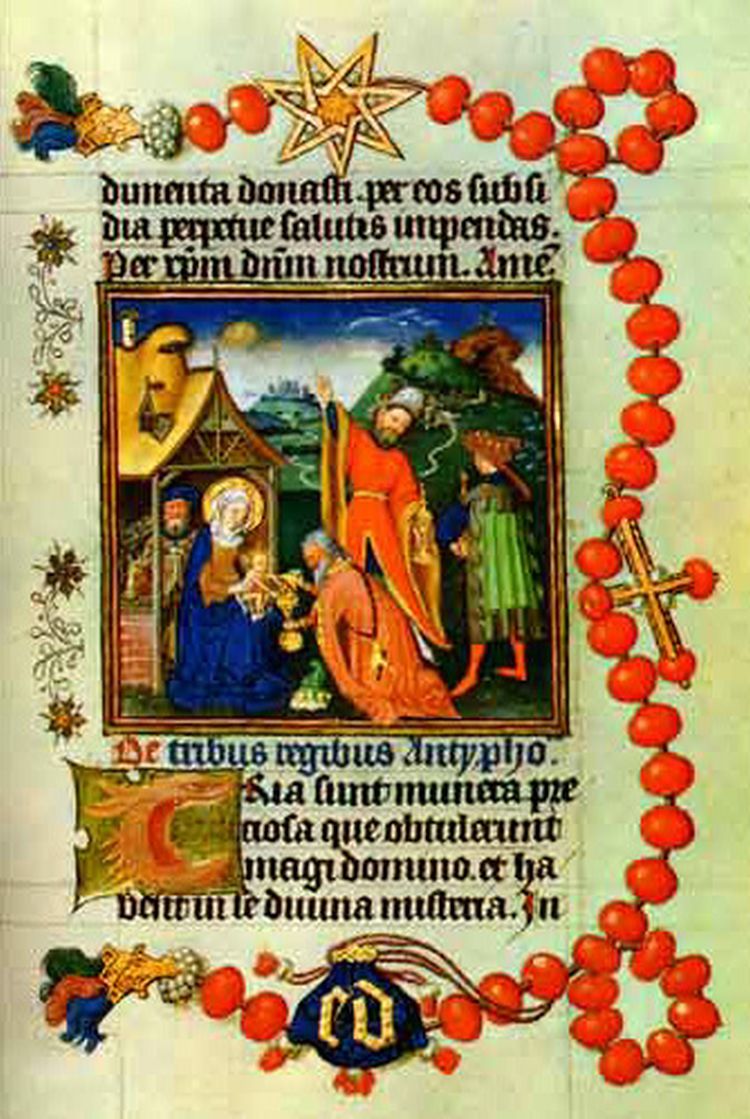 dimenta donasti. per eos subsi
dia perpetue salutis impendas.
Per xp̄m dn̄m nostrum. Amē.
De tribus regibus Antypho.
TRia sunt munera pre
ciosa que obtulerunt
magi domino. et ha
bent in se diuina misteria. In
ed